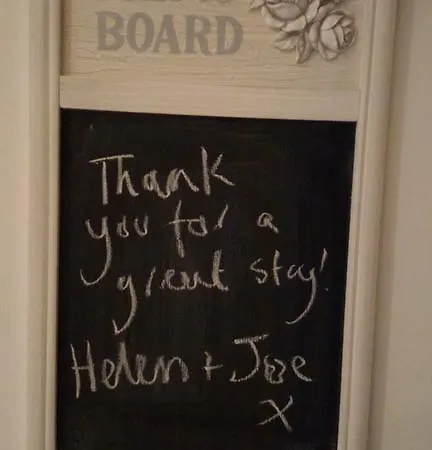 BOARD
Thank
you for a
great stay!
Helen + Joe
x